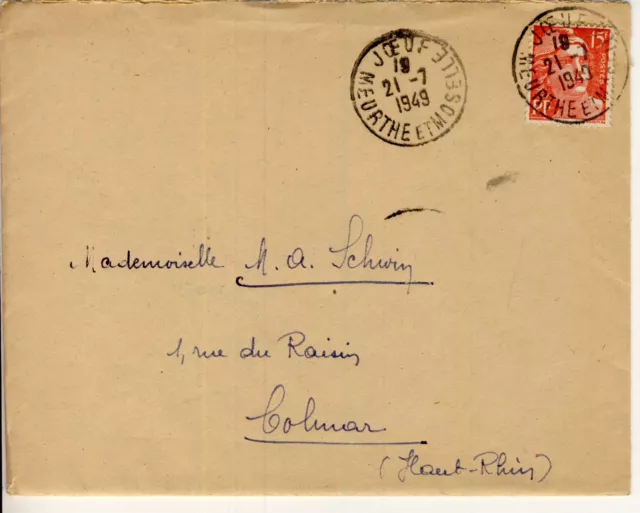 JŒUF
19
21 -7
1949
MEURTHE ET MOSELLE
JŒUF
19
21 -7
1949
MEURTHE ET M
15F
Mademoiselle M. A. Schwin
1, rue du Raisin
Colmar
(Haut-Rhin)